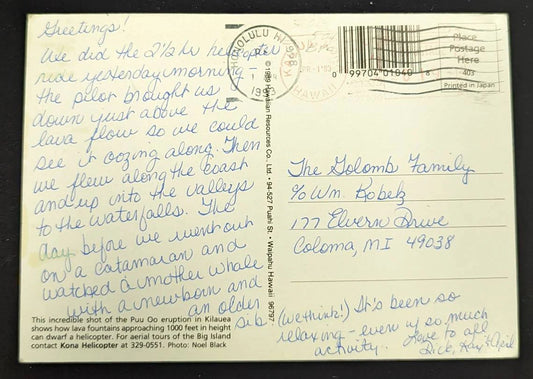 Greetings!
We did the 2½ hr helicopter
ride yesterday morning -
the pilot brought us
down just above the
lava flow so we could
see it oozing along. Then
we flew along the coast
and up into the valleys
to the waterfalls. The
day before we went out
on a catamaran and
watched a mother whale
with a newborn and
an older
sib.
(We think!) It's been so
relaxing - even w/ so much
activity.
Love to all
Dick, Kay & April
This incredible shot of the Puu Oo eruption in Kilauea
shows how lava fountains approaching 1000 feet in height
can dwarf a helicopter. For aerial tours of the Big Island
contact Kona Helicopter at 329-0551. Photo: Noel Black
© 1989 Hawaiian Resources Co. Ltd. • 94-527 Puahi St. • Waipahu Hawaii 96797
HONOLULU HI
1993
HAWAII
0 99704 01040 8
Place
Postage
Here
403
Printed in Japan
The Golomb Family
c/o Wm. Bobelz
177 Elvern Drive
Coloma, MI 49038